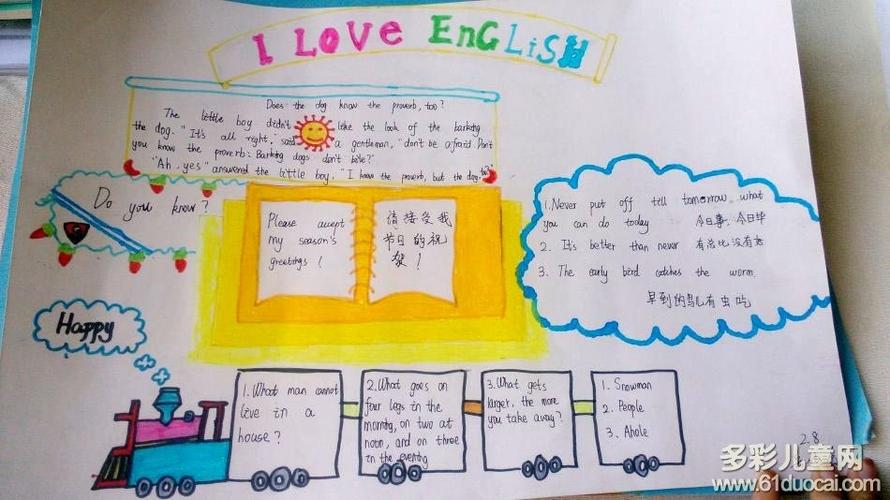 I LOVE EnGLiSH
Does the dog know the proverb, too?
The little boy didn't like the look of the barking
the dog. "It's all right," said a gentleman, "don't be afraid. Don't
you know the proverb: Barking dogs don't bite?"
"Ah, yes" answered the little boy. "I know the proverb, but the dog too?"
Do you know?
Please accept
my season's
greetings!
请接受我
节日的祝
贺!
1. Never put off till tomorrow what
you can do today 今日事,今日毕
2. It's better than never 有总比没有好
3. The early bird catches the worm.
早到的鸟儿有虫吃
Happy
1. What man cannot
live in a
house?
2. What goes on
four legs in the
morning, on two at
noon, and on three
in the evening
3. What gets
larger, the more
you take away?
1. Snowman
2. People
3. Ahole
28
多彩儿童网
www.61duocai.com